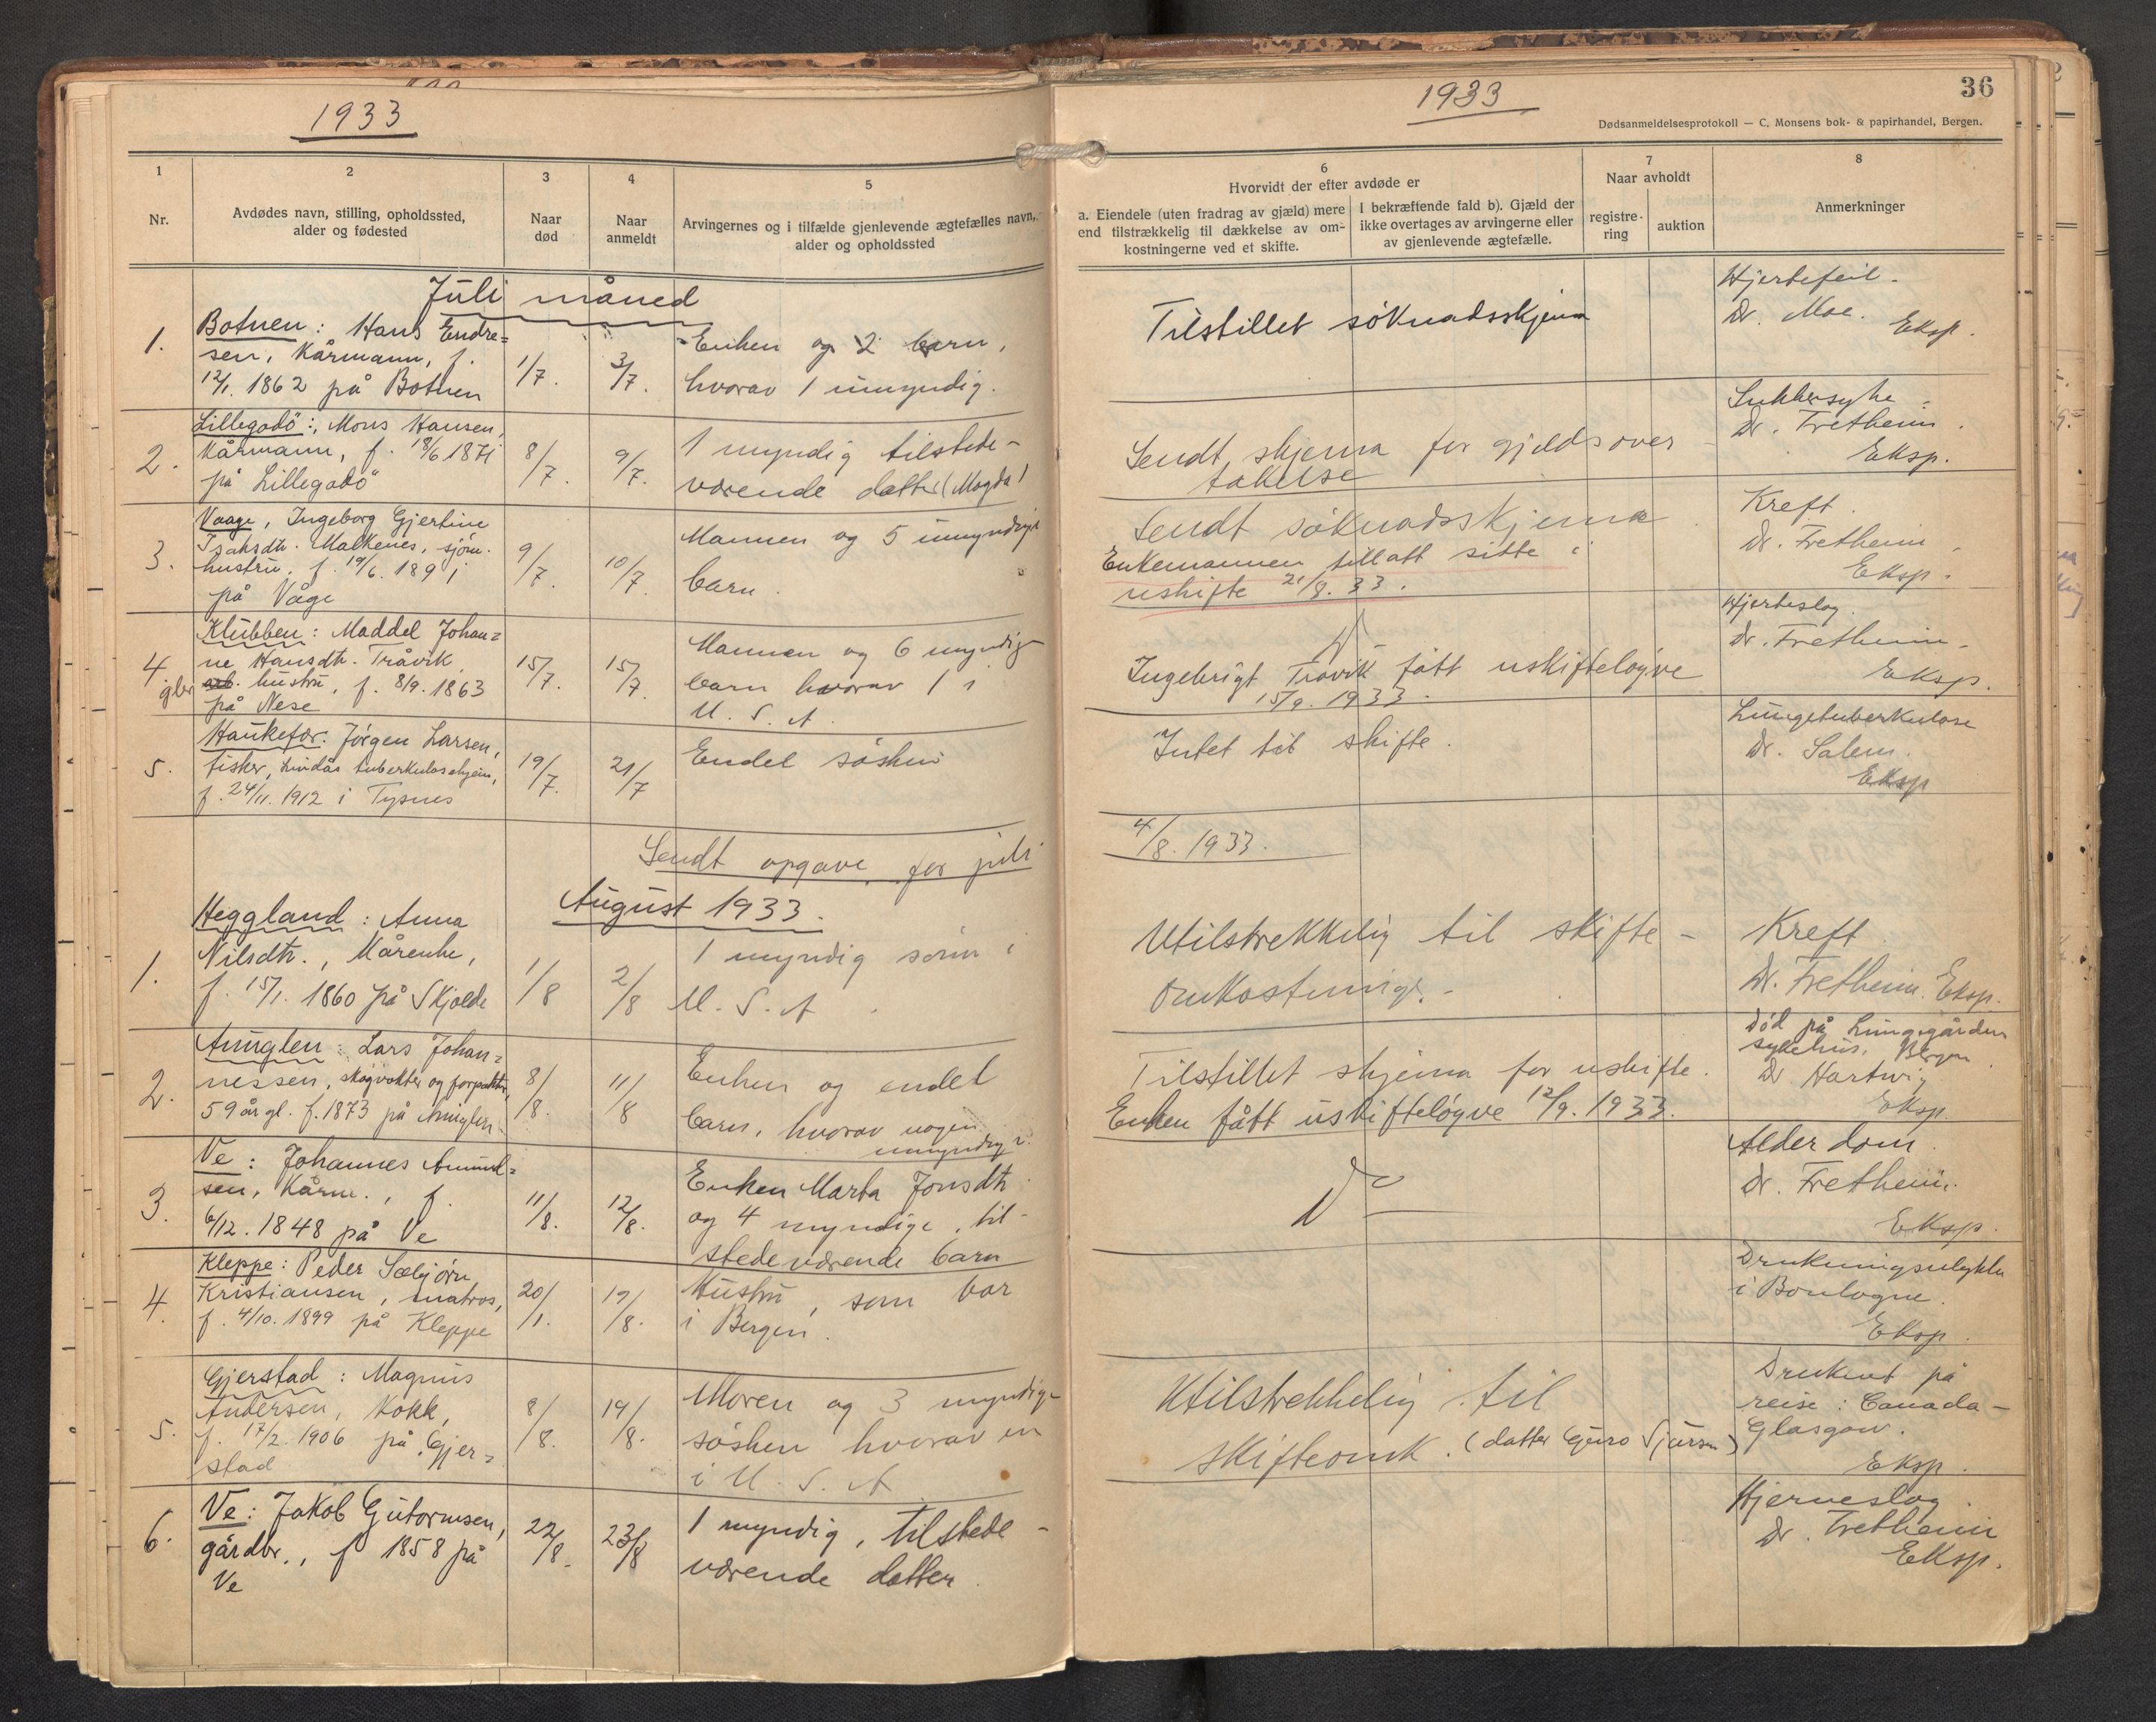 1933
1
2
3
4
5
Nr.
Avdødes navn, stilling, opholdssted,
alder og fødested
Naar
død
Naar
anmeldt
Arvingernes og i tilfælde gjenlevende ægtefælles navn,
alder og opholdssted
Juli måned
1.
Botnen: Hans Endre=
sen, Kårmann, f.
12/1. 1862 på Botnen
1/7.
3/7.
Enken og 2 barn,
hvorav 1 umyndig.
2.
Lillegodö: Mons Hansen,
Kårmann, f. 18/6 1871
på Lillegodö
8/7.
9/7.
1 myndig tilstede-
værende datter (Magda)
3.
Vaage, Ingeborg Gjertine
Isaksdtr. Malkenes, sjöm.
hustru, f. 19/6. 1891
på Våge
9/7.
10/7.
Mannen og 5 umyndige
barn
4
gbr
Klubben: Maddel Johan=
ne Hansdtr. Tråvik
arb. hustru, f. 8/9. 1863
på Nese
15/7.
15/7.
Mannen og 6 myndige
barn hvorav 1 i
U. S. A.
5.
Haukefær. Jörgen Larsen,
fisker, Lindås tuberkulosehjem,
f. 24/11. 1912 i Tysnes
19/7.
21/7
Endel sösken
Sendt opgave for juli
August 1933.
1.
Heggland: Anna
Nilsdtr., Kårenke,
f. 15/1. 1860 på Skjolde
1/8
2/8
1 myndig sönn i
U. S. A.
2.
Anuglen: Lars Johan=
nessen, skogvokter og forpakter,
59 år gl. f. 1873 på Anuglen
8/8.
11/8
Enken og endel
barn, hvorav nogen
umyndige
3.
Ve: Johannes Amund=
sen, Kårm., f.
6/12. 1848 på Ve
11/8.
12/8.
Enken Marta Jonsdtr.
og 4 myndige, til-
stedeværende barn
4.
Kleppe: Peder Sæbjörn
Kristiansen, matros,
f. 4/10. 1899 på Kleppe
20/1.
19/8.
Hustru, som bor
i Bergen.
5.
Gjerstad: Magnus
Andersen, Kokk,
f. 17/2. 1906 på Gjer=
stad
8/8.
19/8.
Moren og 3 myndige
sösken hvorav en
i U. S. A
6.
Ve: Jakob Gutormsen,
gårdbr., f 1858 på
Ve
22/8.
23/8
1 myndig, tilstede-
værende datter.
1933
36
Dødsanmeldelsesprotokoll — C. Monsens bok- & papirhandel, Bergen.
6
Hvorvidt der efter avdøde er
a. Eiendele (uten fradrag av gjæld) mere
end tilstrækkelig til dækkelse av om-
kostningerne ved et skifte.
I bekræftende fald b). Gjæld der
ikke overtages av arvingerne eller
av gjenlevende ægtefælle.
7
Naar avholdt
registre-
ring
auktion
8
Anmerkninger
Tilstillet söknadsskjema
Hjertefeil.
Dr. Moe.
Eksp.
Sendt skjema for gjeldsover-
takelse
Sukkersyke
Dr. Fretheim.
Eksp.
Sendt söknadsskjema
Enkemannen tillatt sitte i
uskifte 21/8. 33.
Kreft.
Dr. Fretheim.
Eksp.
Ingebrigt Tråvik fått uskiftelöyve
15/9. 1933.
Hjerteslag.
Dr. Fretheim.
Eksp.
Intet til skifte.
Lungetuberkulose
Dr. Salem.
Eksp
4/8. 1933.
Utilstrekkelig til skifte-
omkostninger.
Kreft
Dr. Fretheim. Eksp.
Tilstillet skjema for uskifte.
Enken fått uskiftelöyve 12/9. 1933.
Död på Lungegården
sykehus, Bergen
Dr Hartwig
Eksp.
Do
Alderdom.
Dr. Fretheim.
Eksp.
Drukningsulykke
i Boulogne.
Eksp.
Utilstrekkelig til
skifteomk. (datter Guro Sjursen)
Druknet på
reise: Canada-
Glasgow.
Eksp.
Hjerneslag.
Dr. Fretheim
Eksp.